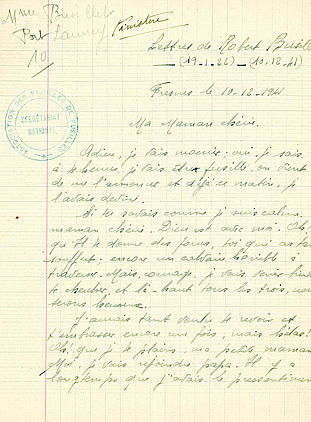 Mme Busillet
Port Launay
Finistère
10
Lettres de Robert Busille
(19-1-22) — (10-12-41)
ASSOCIATION DES FAMILLES DE FUSILLÉS
SECRÉTARIAT
NATIONAL
Fresnes le 10-12-1941
Ma Maman chérie.
Adieu, je vais mourir: oui, je sais
à 4 heures, je vais être fusillé, on vient
de me l'annoncer et déjà ce matin, je
l'avais deviné.
Si tu savais comme je suis calme
maman chérie. Dieu est avec moi. Oh!
qu'Il te donne des jours, toi qui as tant
souffert; encore un calvaire horrible à
traverser. Mais, courage, je vais venir bientôt
te chercher, et là-haut tous les trois, nous
serons heureux.
J'aurais tant voulu te revoir et
t'embrasser encore une fois, mais hélas!
Oh! que je te plains, ma petite maman
Moi, je vais rejoindre papa. Il y a
longtemps que j'avais le pressentimen